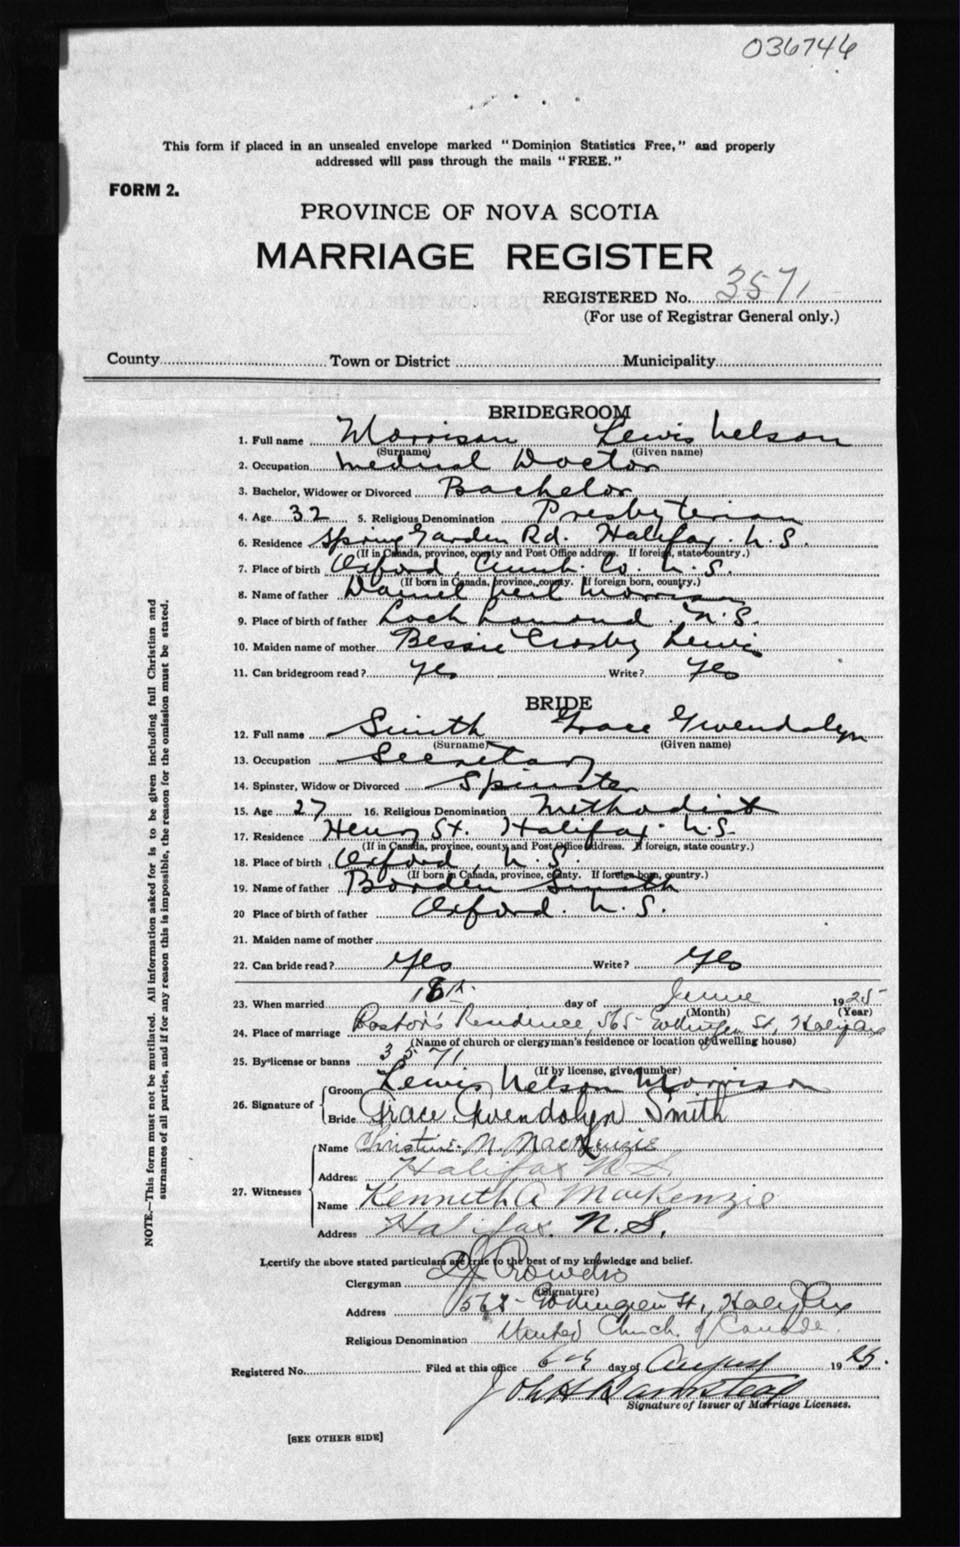 036746
This form if placed in an unsealed envelope marked "Dominion Statistics Free," and properly
addressed will pass through the mails "FREE."
FORM 2.
PROVINCE OF NOVA SCOTIA
MARRIAGE REGISTER
REGISTERED No. 3571
(For use of Registrar General only.)
County Town or District Municipality
BRIDEGROOM
1. Full name Morrison Lewis Nelson
(Surname) (Given name)
2. Occupation Medical Doctor
3. Bachelor, Widower or Divorced Bachelor
4. Age 32 5. Religious Denomination Presbyterian
6. Residence Spring Garden Rd. Halifax. N.S.
(If in Canada, province, county and Post Office address. If foreign, state country.)
7. Place of birth Oxford, Cumb. Co. N.S.
(If born in Canada, province, county. If foreign born, country.)
8. Name of father Daniel Neil Morrison
9. Place of birth of father Loch Lomond. N.S.
10. Maiden name of mother Bessie Crosby Lewis
11. Can bridegroom read? Yes Write? Yes
BRIDE
12. Full name Smith Grace Gwendolyn
(Surname) (Given name)
13. Occupation Secretary
14. Spinster, Widow or Divorced Spinster
15. Age 27 16. Religious Denomination Methodist
17. Residence Henry St. Halifax. N.S.
(If in Canada, province, county and Post Office address. If foreign, state country.)
18. Place of birth Oxford, N.S.
(If born in Canada, province, county. If foreign born, country.)
19. Name of father Borden Smith
20 Place of birth of father Oxford. N.S.
21. Maiden name of mother
22. Can bride read? Yes Write? Yes
23. When married 18th day of June 1925
(Month) (Year)
24. Place of marriage Pastor's Residence, 565 St, Halifax
(Name of church or clergyman's residence or location of dwelling house)
25. By license or banns 3571
(If by license, give number)
26. Signature of Groom Lewis Nelson Morrison
Bride Grace Gwendolyn Smith
27. Witnesses Name Christine N. MacKenzie
Address Halifax N.S.
Name Kenneth A MacKenzie
Address Halifax. N.S.
I certify the above stated particulars are true to the best of my knowledge and belief.
Clergyman
(Signature)
Address St., Halifax
Religious Denomination United Church of Canada.
Registered No. Filed at this office 6th day of August 1925.
Signature of Issuer of Marriage Licenses.
[SEE OTHER SIDE]
NOTE.—This form must not be mutilated. All information asked for is to be given including full Christian and
surnames of all parties, and if for any reason this is impossible, the reason for the omission must be stated.